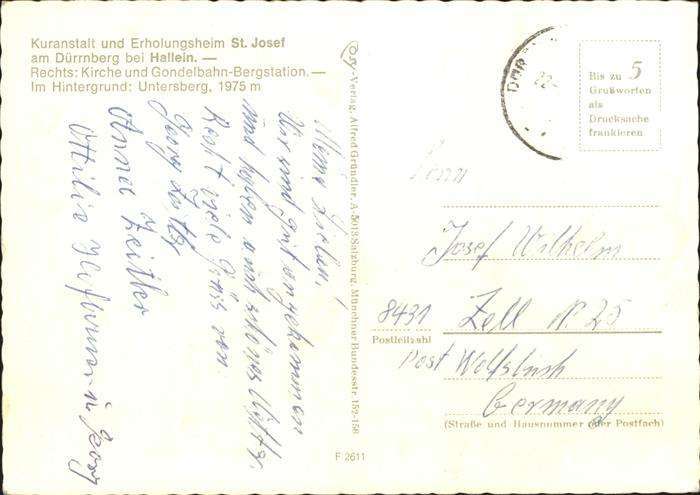 Kuranstalt und Erholungsheim St. Josef
am Dürrnberg bei Hallein. —
Rechts: Kirche und Gondelbahn-Bergstation. —
Im Hintergrund: Untersberg, 1975 m
Meine Lieben!
Wir sind gut angekommen
und haben auch schönes
Recht viele Grüße von
Georg Zeitler
Anna Zeitler
Ottilie
Georg
Cosy-Verlag, Alfred Gründler, A-5013 Salzburg, Münchner Bundesstr. 152-156
F 2611
DÜRR
Bis zu 5
Grußworten
als
Drucksache
frankieren
Josef Wilhelm
8431 Zell N. 25
Postleitzahl
Post
Germany
(Straße und Hausnummer oder Postfach)